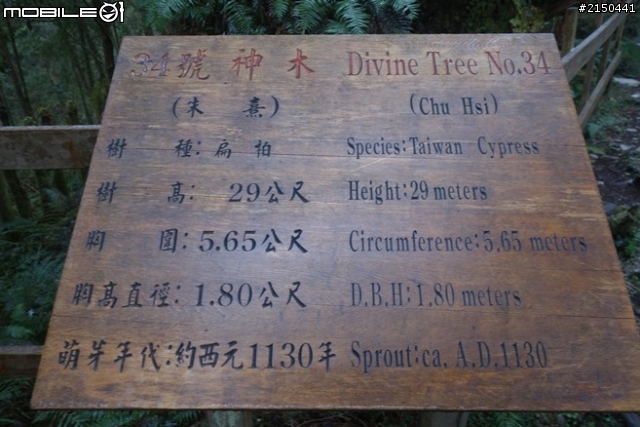 MOBILE01
#2150441
34號 神木 Divine Tree No.34
(朱 熹) (Chu Hsi)
樹 種: 扁 柏 Species:Taiwan Cypress
樹 高: 29公尺 Height:29 meters
胸 圍: 5.65公尺 Circumference:5.65 meters
胸高直徑: 1.80公尺 D.B.H:1.80 meters
萌芽年代:約西元1130年 Sprout:ca, A.D.1130